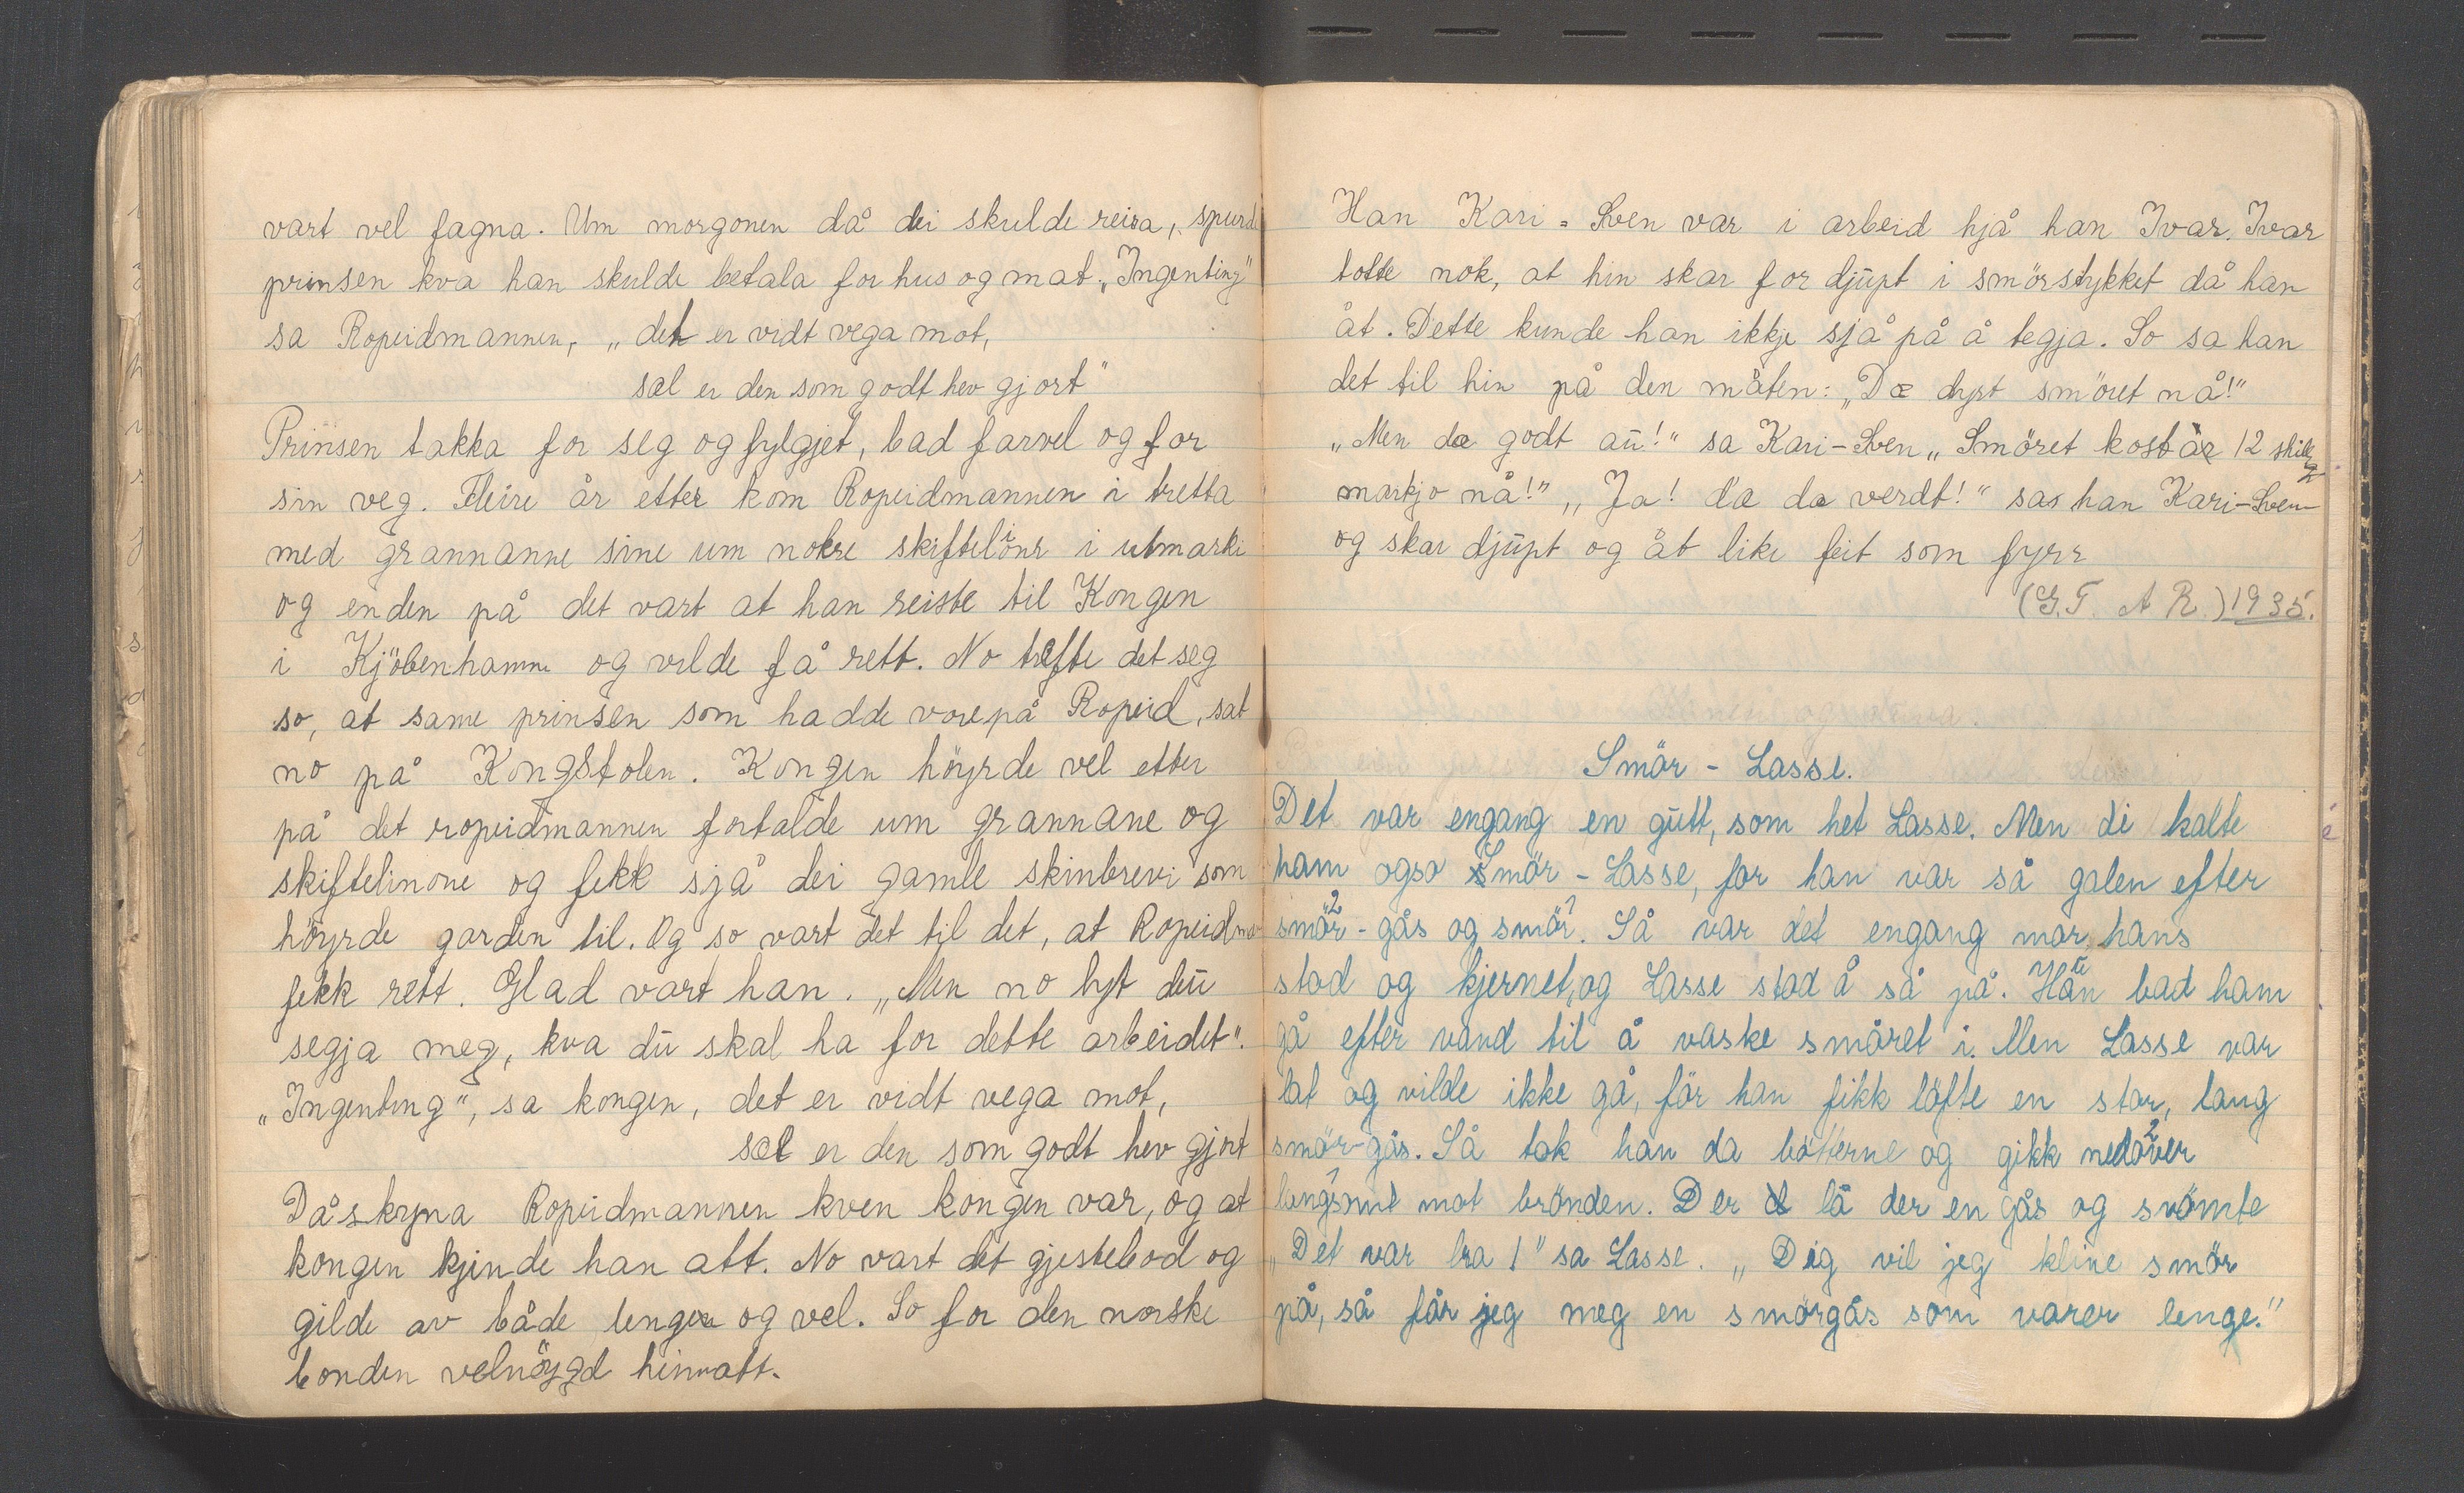 vart vel fagna. Um morgonen då dei skulde reisa, spurd
prinsen kva han skulde betala for hus og mat. „Ingenting"
sa Ropeidmannen, „det er vidt vega mot,
sæl er den som godt hev gjort"
Prinsen takka for seg og fylgjet, bad farvel og for
sin veg. Fleire år etter kom Ropeidmannen i tretta
med grannanne sine um nokre skiftelinur i utmarki
og enden på det vart at han reiste til Kongen
i Kjöbenhamn og vilde få rett. No trefte det seg
so, at same prinsen som hadde vore på Ropeid, sat
no på Kongstolen. Kongen höyrde vel etter
på det ropeidmannen fortalde um grannane og
skiftelinone og fekk sjå dei gamle skinbrevi som
höyrde garden til. Og so vart det til det, at Ropeidma
fekk rett. Glad vart han. „Men no lyt dü
segja meg, kva dü skal ha for dette arbeidet".
„Ingenting", sa kongen, det er vidt vega mot,
sæl er den som godt hev gjort
Då skyna Ropeidmannen kven kongen var, og at
kongen kjende han att. No vart det gjestebod og
gilde av både lenge og vel. So for den norske
bonden velnöygd heimatt.
Han Kari-Sven var i arbeid hjå han Ivar. Ivar
totte nok, at hin skar for djüpt i smörstykket då han
åt. Dette kunde han ikkje sjå på å tegja. So sa han
det til hin på den måten: „Dæ dyrt smöret nå!"
„Men dæ godt aü!" sa Kari-Sven „Smöret kostar 12 skilg
markjo nå!" „Ja! dæ dæ verdt!" sa han Kari-Sven
og skar djüpt og åt like feit som fyrr
(G.T. A R.) 1935.
Smör - Lasse.
Det var engang en gütt, som het Lasse. Men di kalte
ham ogso Smör - Lasse, for han var så galen efter
smör - gås og smör. Så var det engang mor hans
stod og kjernet, og Lasse stod å så på. Hün bad ham
gå efter vand til å vaske smöret i. Men Lasse var
lat og vilde ikke gå, för han fikk löfte en stor, lang
smör-gås. Så tok han da bötterne og gikk nedover
langsomt mot brönden. Der lå der en gås og svömte
„Det var bra!" sa Lasse. „Dig vil jeg kline smör
på, så får jeg meg en smörgås som varer lenge."